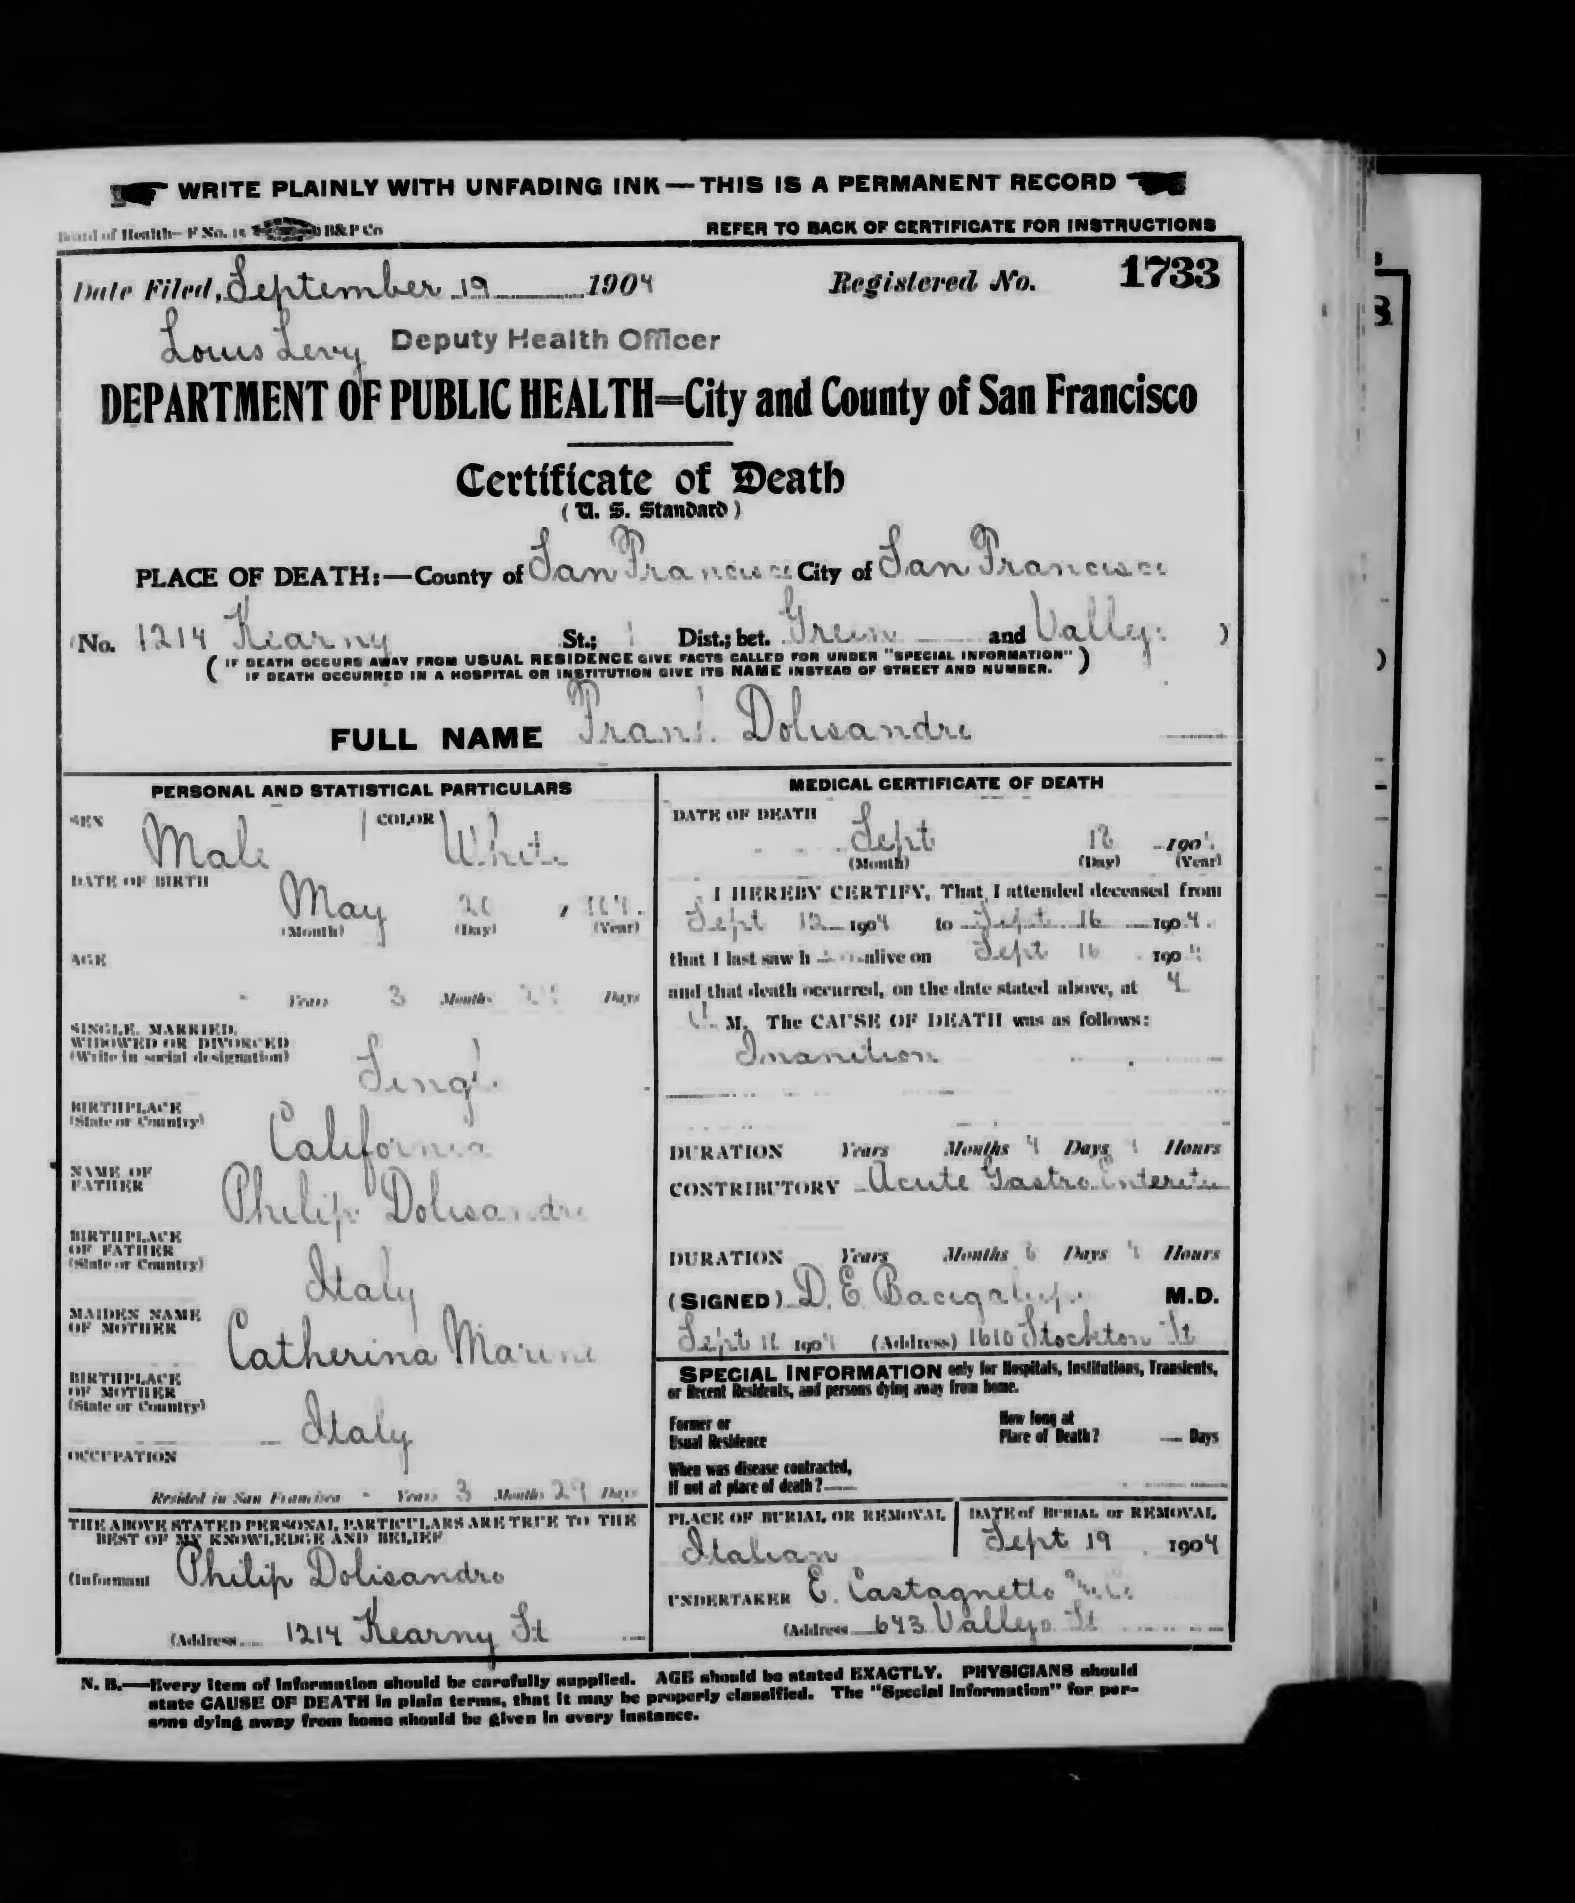 WRITE PLAINLY WITH UNFADING INK — THIS IS A PERMANENT RECORD
Board of Health—F No. 15 B&P Co REFER TO BACK OF CERTIFICATE FOR INSTRUCTIONS
Date Filed, September 19 1904 Registered No. 1733
Louis Levy Deputy Health Officer
DEPARTMENT OF PUBLIC HEALTH=City and County of San Francisco
Certificate of Death
(U. S. Standard)
PLACE OF DEATH:—County of San Francisco City of San Francisco
(No. 1214 Kearny St.; 1 Dist.; bet. Green and Vallejo )
( IF DEATH OCCURS AWAY FROM USUAL RESIDENCE GIVE FACTS CALLED FOR UNDER "SPECIAL INFORMATION" )
IF DEATH OCCURRED IN A HOSPITAL OR INSTITUTION GIVE ITS NAME INSTEAD OF STREET AND NUMBER.
FULL NAME Frank Dolisandro
PERSONAL AND STATISTICAL PARTICULARS
SEX Male COLOR White
DATE OF BIRTH May 20
(Month) (Day) (Year)
AGE
Years 3 Months 29 Days
SINGLE, MARRIED,
WIDOWED OR DIVORCED
(Write in social designation)
Single
BIRTHPLACE
(State or Country)
California
NAME OF
FATHER
Philip Dolisandro
BIRTHPLACE
OF FATHER
(State or Country)
Italy
MAIDEN NAME
OF MOTHER
Catherina Marino
BIRTHPLACE
OF MOTHER
(State or Country)
Italy
OCCUPATION
Resided in San Francisco - Years 3 Months 29 Days
THE ABOVE STATED PERSONAL PARTICULARS ARE TRUE TO THE
BEST OF MY KNOWLEDGE AND BELIEF
(Informant Philip Dolisandro
(Address 1214 Kearny St
MEDICAL CERTIFICATE OF DEATH
DATE OF DEATH
Sept 18 1904
(Month) (Day) (Year)
I HEREBY CERTIFY, That I attended deceased from
Sept 12 1904 to Sept 16 1904
that I last saw h alive on Sept 16 1904
and that death occurred, on the date stated above, at 4
M. The CAUSE OF DEATH was as follows:
Inanition
DURATION Years Months 4 Days Hours
CONTRIBUTORY Acute Gastro Enteritis
DURATION Years Months 6 Days 4 Hours
(SIGNED) D. E. Bacigalupi M.D.
Sept 1904 (Address) 1610 Stockton St
SPECIAL INFORMATION only for Hospitals, Institutions, Transients,
or Recent Residents, and persons dying away from home.
Former or
Usual Residence
How long at
Place of Death? Days
When was disease contracted,
If not at place of death?
PLACE OF BURIAL OR REMOVAL
Italian
DATE of BURIAL or REMOVAL
Sept 19 1904
UNDERTAKER E. Castagnetto
(Address 643 Vallejo St
N. B.—Every item of information should be carefully supplied. AGE should be stated EXACTLY. PHYSICIANS should
state CAUSE OF DEATH in plain terms, that it may be properly classified. The "Special Information" for per-
sons dying away from home should be given in every instance.